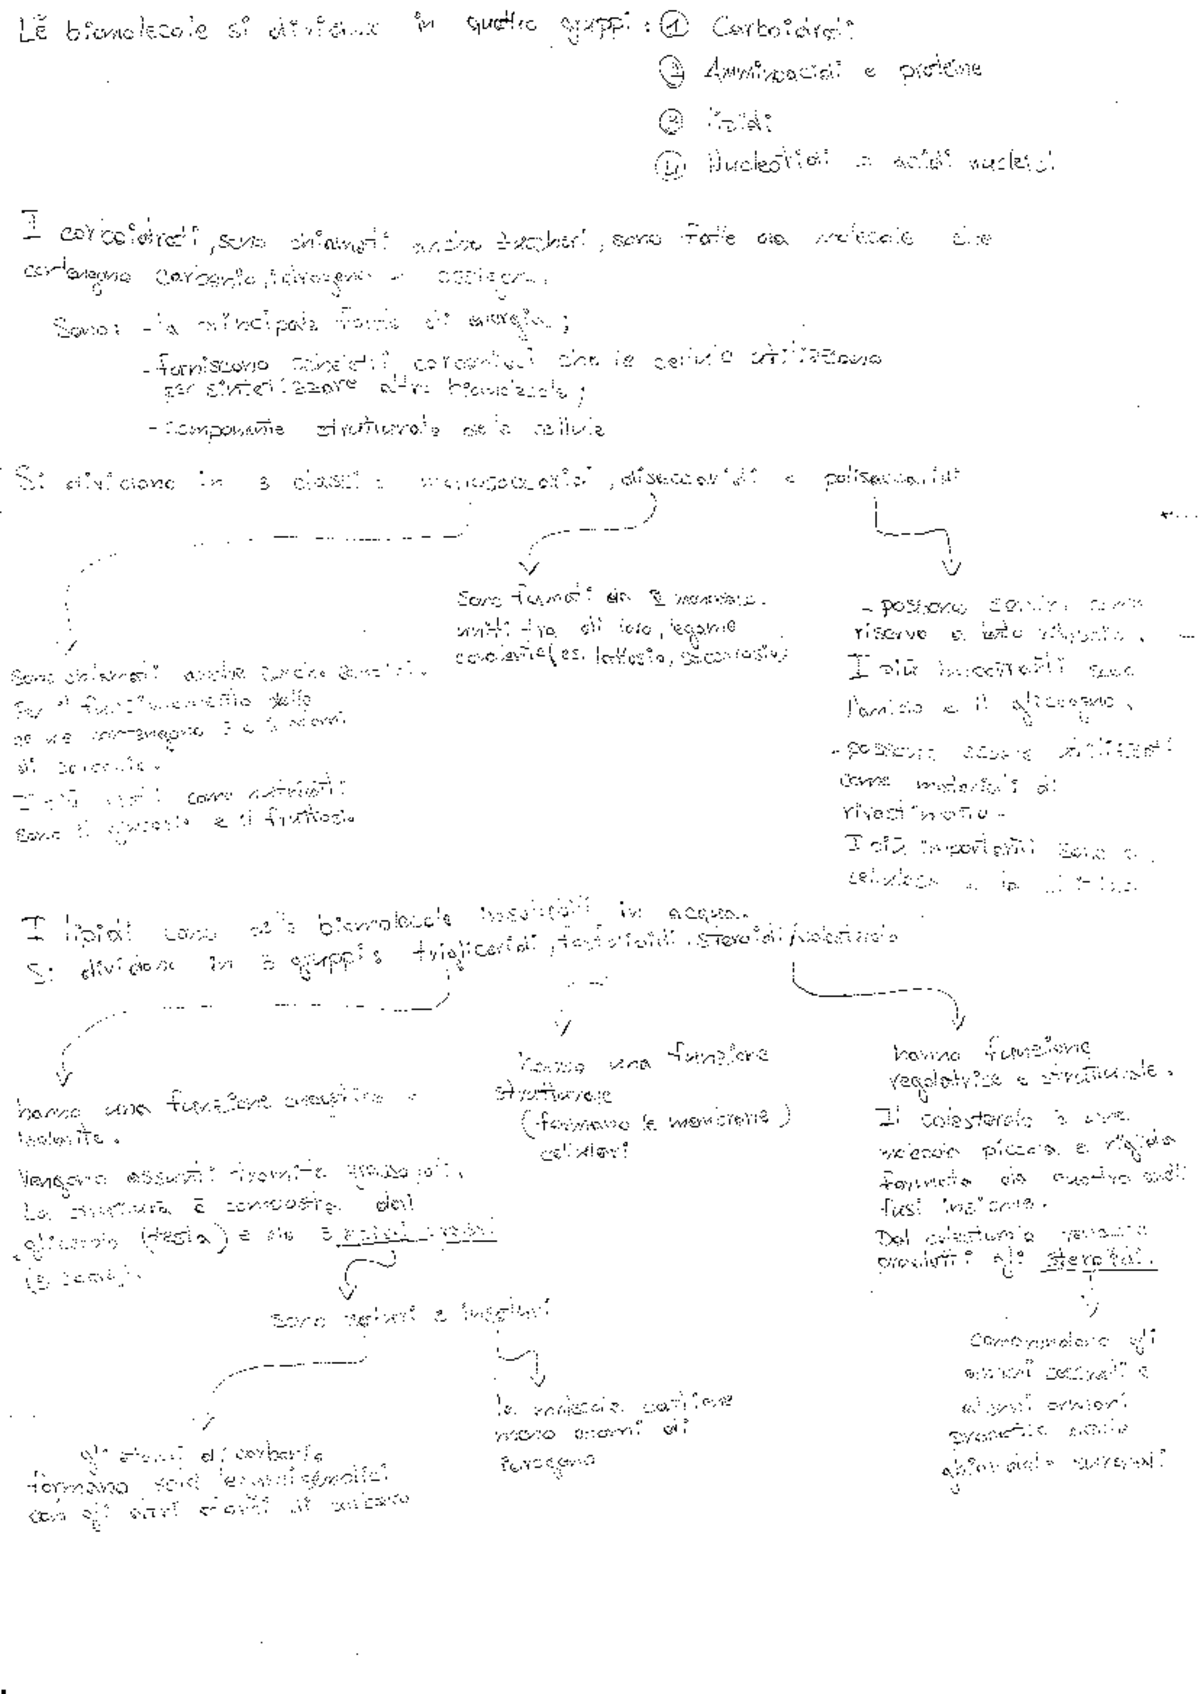 Le biomolecole si dividono in quattro gruppi: ① Carboidrati
② Amminoacidi e proteine
③ lipidi
④ Nucleotidi e acidi nucleici
I carboidrati, sono chiamati anche zuccheri, sono fatte da molecole che
contengono carbonio, idrogeno e ossigeno.
Sono: - la principale fonte di energia;
- forniscono scheletri carboniosi che le cellule utilizzano
per sintetizzare altre biomolecole;
- componente strutturale delle cellule
Si dividono in 3 classi: monosaccaridi, disaccaridi e polisaccaridi
Sono formati da 2 monosacc.
uniti tra di loro, legame
covalente (es. lattosio, saccarosio)
- possono
riserva a
I più importanti sono
l'amido e il glicogeno.
- possono essere utilizzati
come materiali di
rivestimento.
I più importanti sono
cellulosa e la
Sono chiamati anche zuccheri semplici.
Per il funzionamento delle
contengono 3 a
di
I più come nutrienti
sono il glucosio e il fruttosio
I lipidi sono biomolecole insolubili in acqua.
Si dividono in 3 gruppi: trigliceridi, fosfolipidi, steroidi/colesterolo
hanno una funzione energetica e
isolante.
Vengono assunti tramite
La struttura è composta dal
glicerolo (testa) e da 3 acidi grassi
(3 code).
hanno una funzione
strutturale
(formano le membrane)
cellulari
hanno funzione
regolatrice e strutturale.
Il colesterolo è una
molecola piccola e rigida
formata da quattro anelli
fusi insieme.
Dal colesterolo vengono
prodotti gli steroidi.
sono saturi e insaturi
gli atomi di carbonio
formano solo legami semplici
con gli altri atomi di carbonio
la molecola contiene
meno atomi di
idrogeno
comprendono gli
ormoni sessuali e
alcuni ormoni
prodotti dalle
ghiandole surrenali